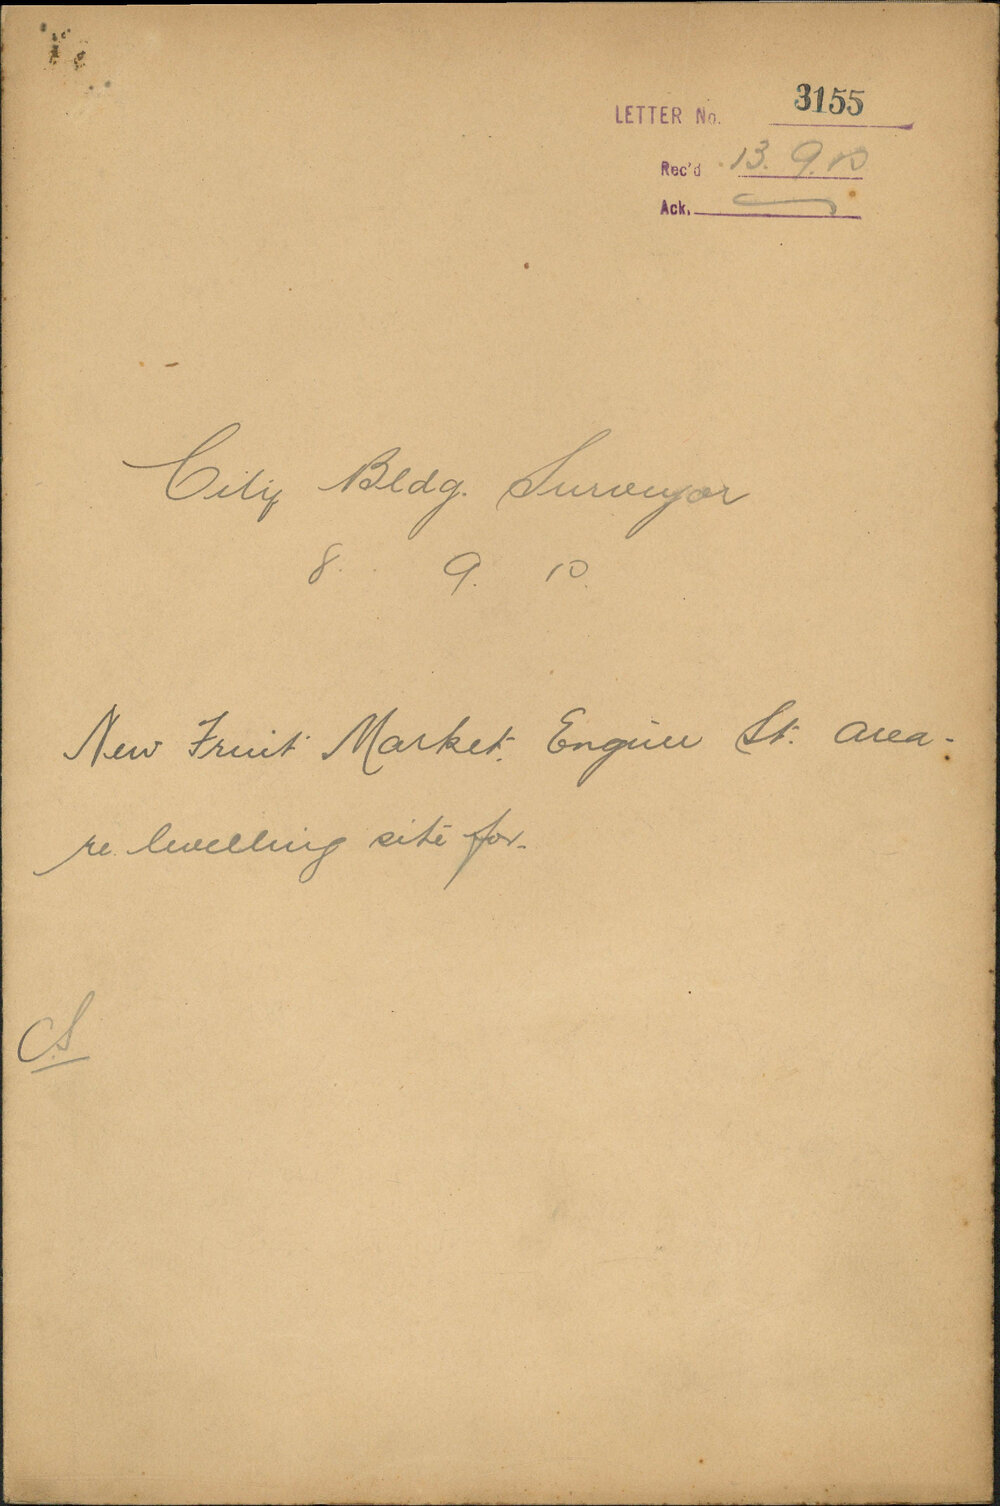 LETTER No. 3155
Rec'd 13.9.10
Ack.
City Bldg. Surveyor
8. 9. 10.
New Fruit Market. Engine St. area -
re levelling site for.
C.S